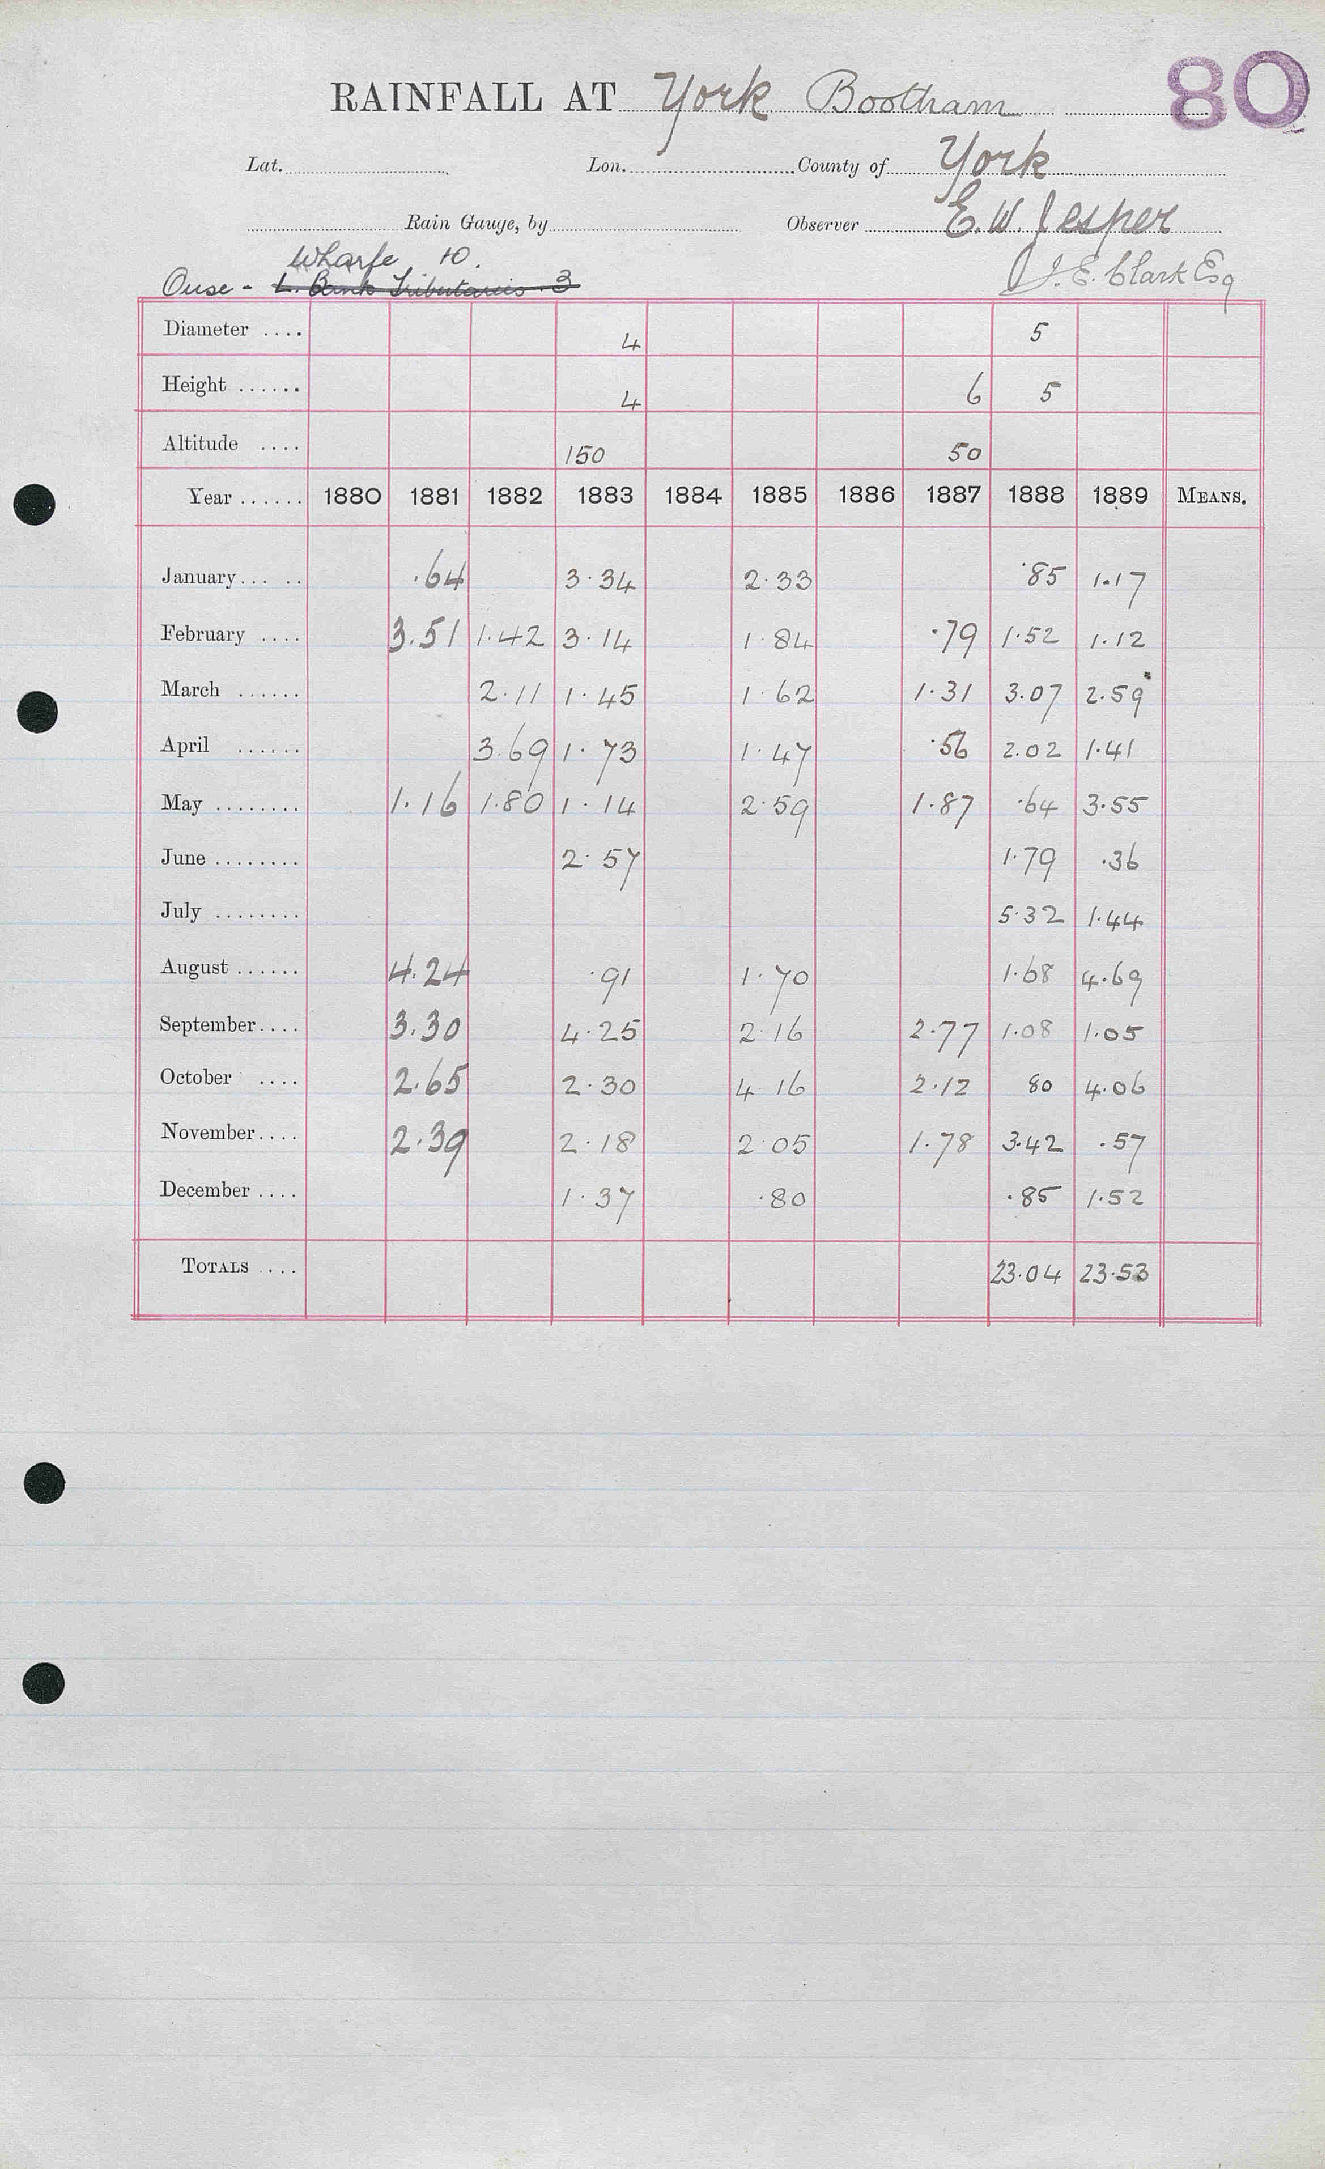 RAINFALL AT York Bootham 80
Lat. Lon. County of York
Rain Gauge, by Observer E. W. Jesper
Wharfe 10.
Ouse - L. Bank Tributaries 3 J. E. Clark Esq
Diameter .... 4 5
Height ...... 4 6 5
Altitude .... 150 50
Year ...... 1880 1881 1882 1883 1884 1885 1886 1887 1888 1889 MEANS.
January... .. .64 3.34 2.33 .85 1.17
February .... 3.51 1.42 3.14 1.84 .79 1.52 1.12
March ...... 2.11 1.45 1.62 1.31 3.07 2.59
April ...... 3.69 1.73 1.47 .56 2.02 1.41
May ........ 1.16 1.80 1.14 2.59 1.87 .64 3.55
June ........ 2.57 1.79 .36
July ........ 5.32 1.44
August ...... 4.24 .91 1.70 1.68 4.69
September.... 3.30 4.25 2.16 2.77 1.08 1.05
October .... 2.65 2.30 4 16 2.12 80 4.06
November.... 2.39 2.18 2.05 1.78 3.42 .57
December .... 1.37 .80 .85 1.52
TOTALS .... 23.04 23.53